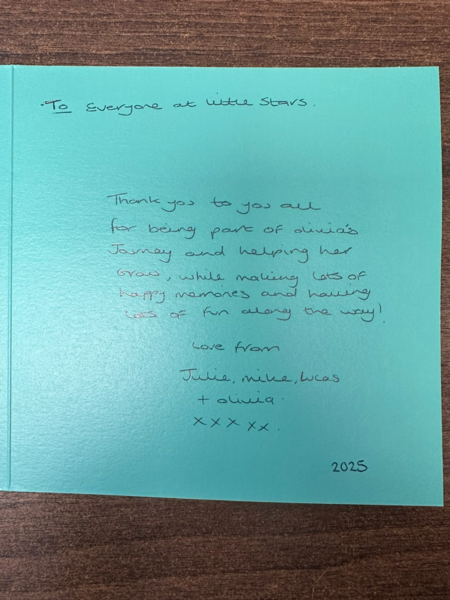 To Everyone at little Stars.
Thank you to you all
for being part of olivia's
Journey and helping her
Grow, while making lots of
happy memories and having
lots of fun along the way!
Love from
Julie, mike, lucas
+ olivia.
x x x x x.
2025